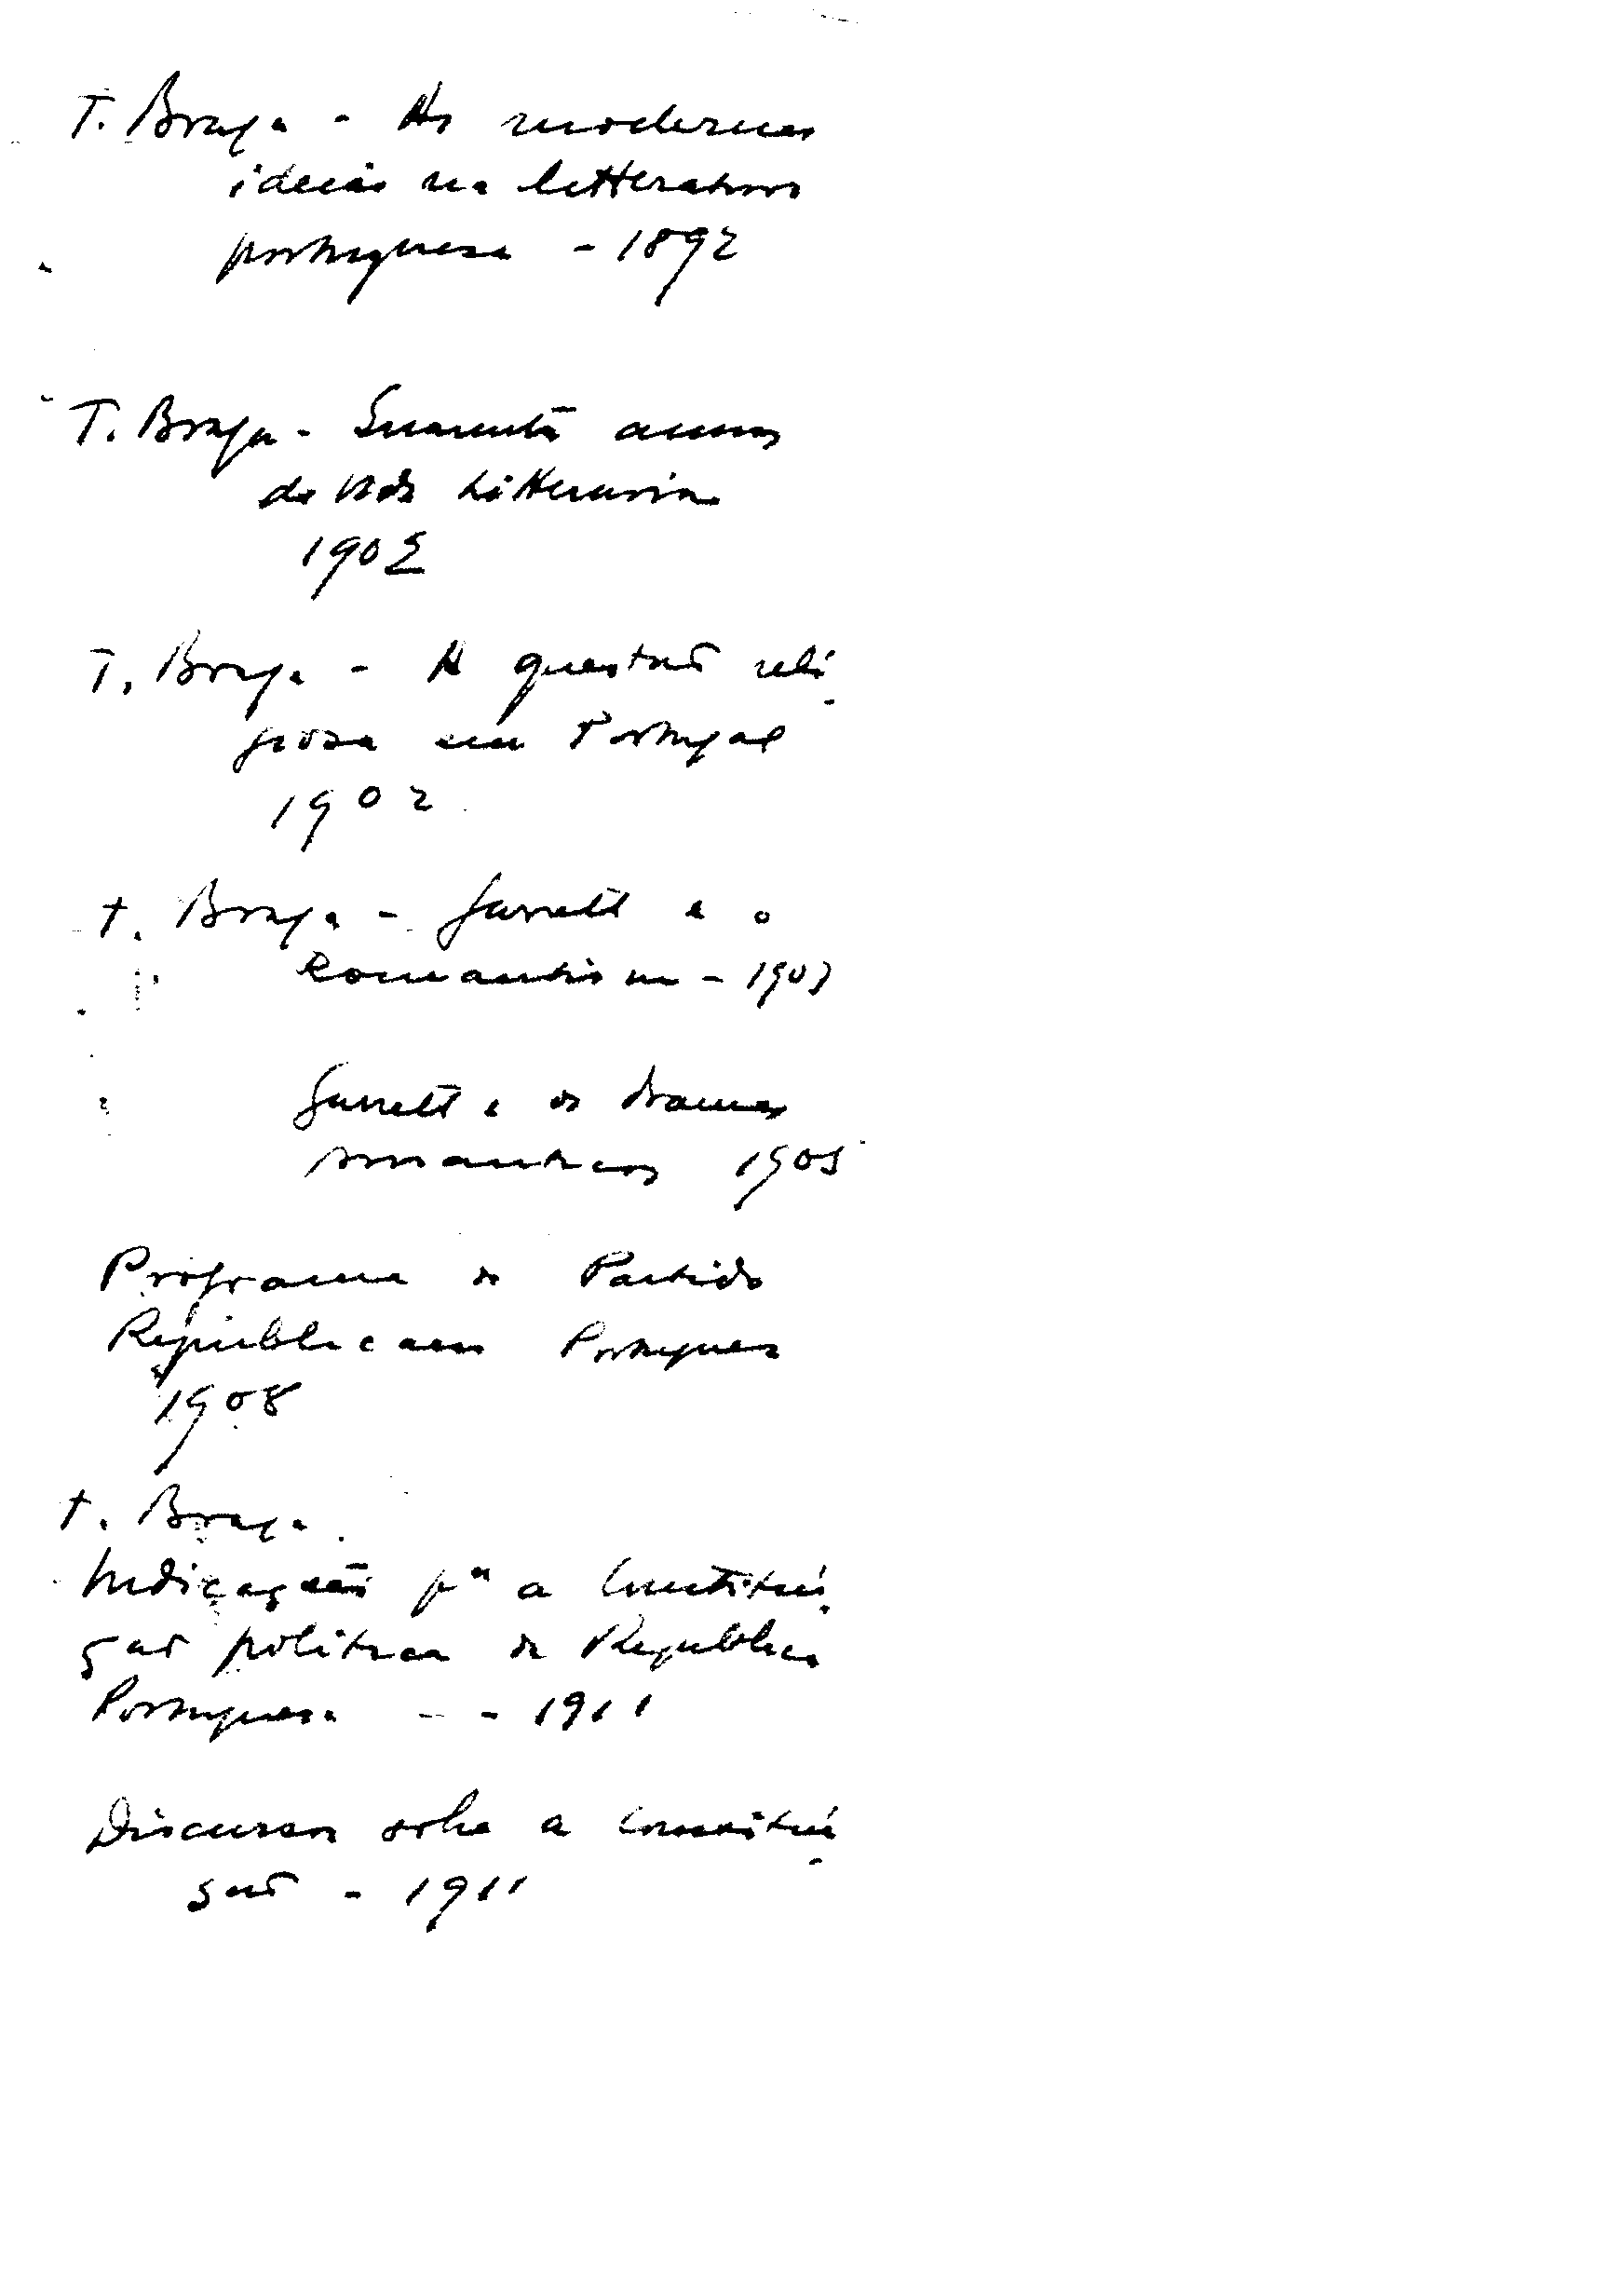 T. Braga - As modernas
ideias na litteratura
portuguesa - 1892
T. Braga - Quarenta annos
de vida litteraria
1902
T. Braga - A questão reli-
giosa em Portugal
1902
T. Braga - Garrett e o
Romantismo - 1903
Garrett e os dramas
romanticos 1905
Programa do Partido
Republicano Portuguez
1908
T. Braga
Indicações pª a Constitui-
ção politica da Republica
Portuguesa - - 1911
Discurso sobre a Constitui-
ção - 1911